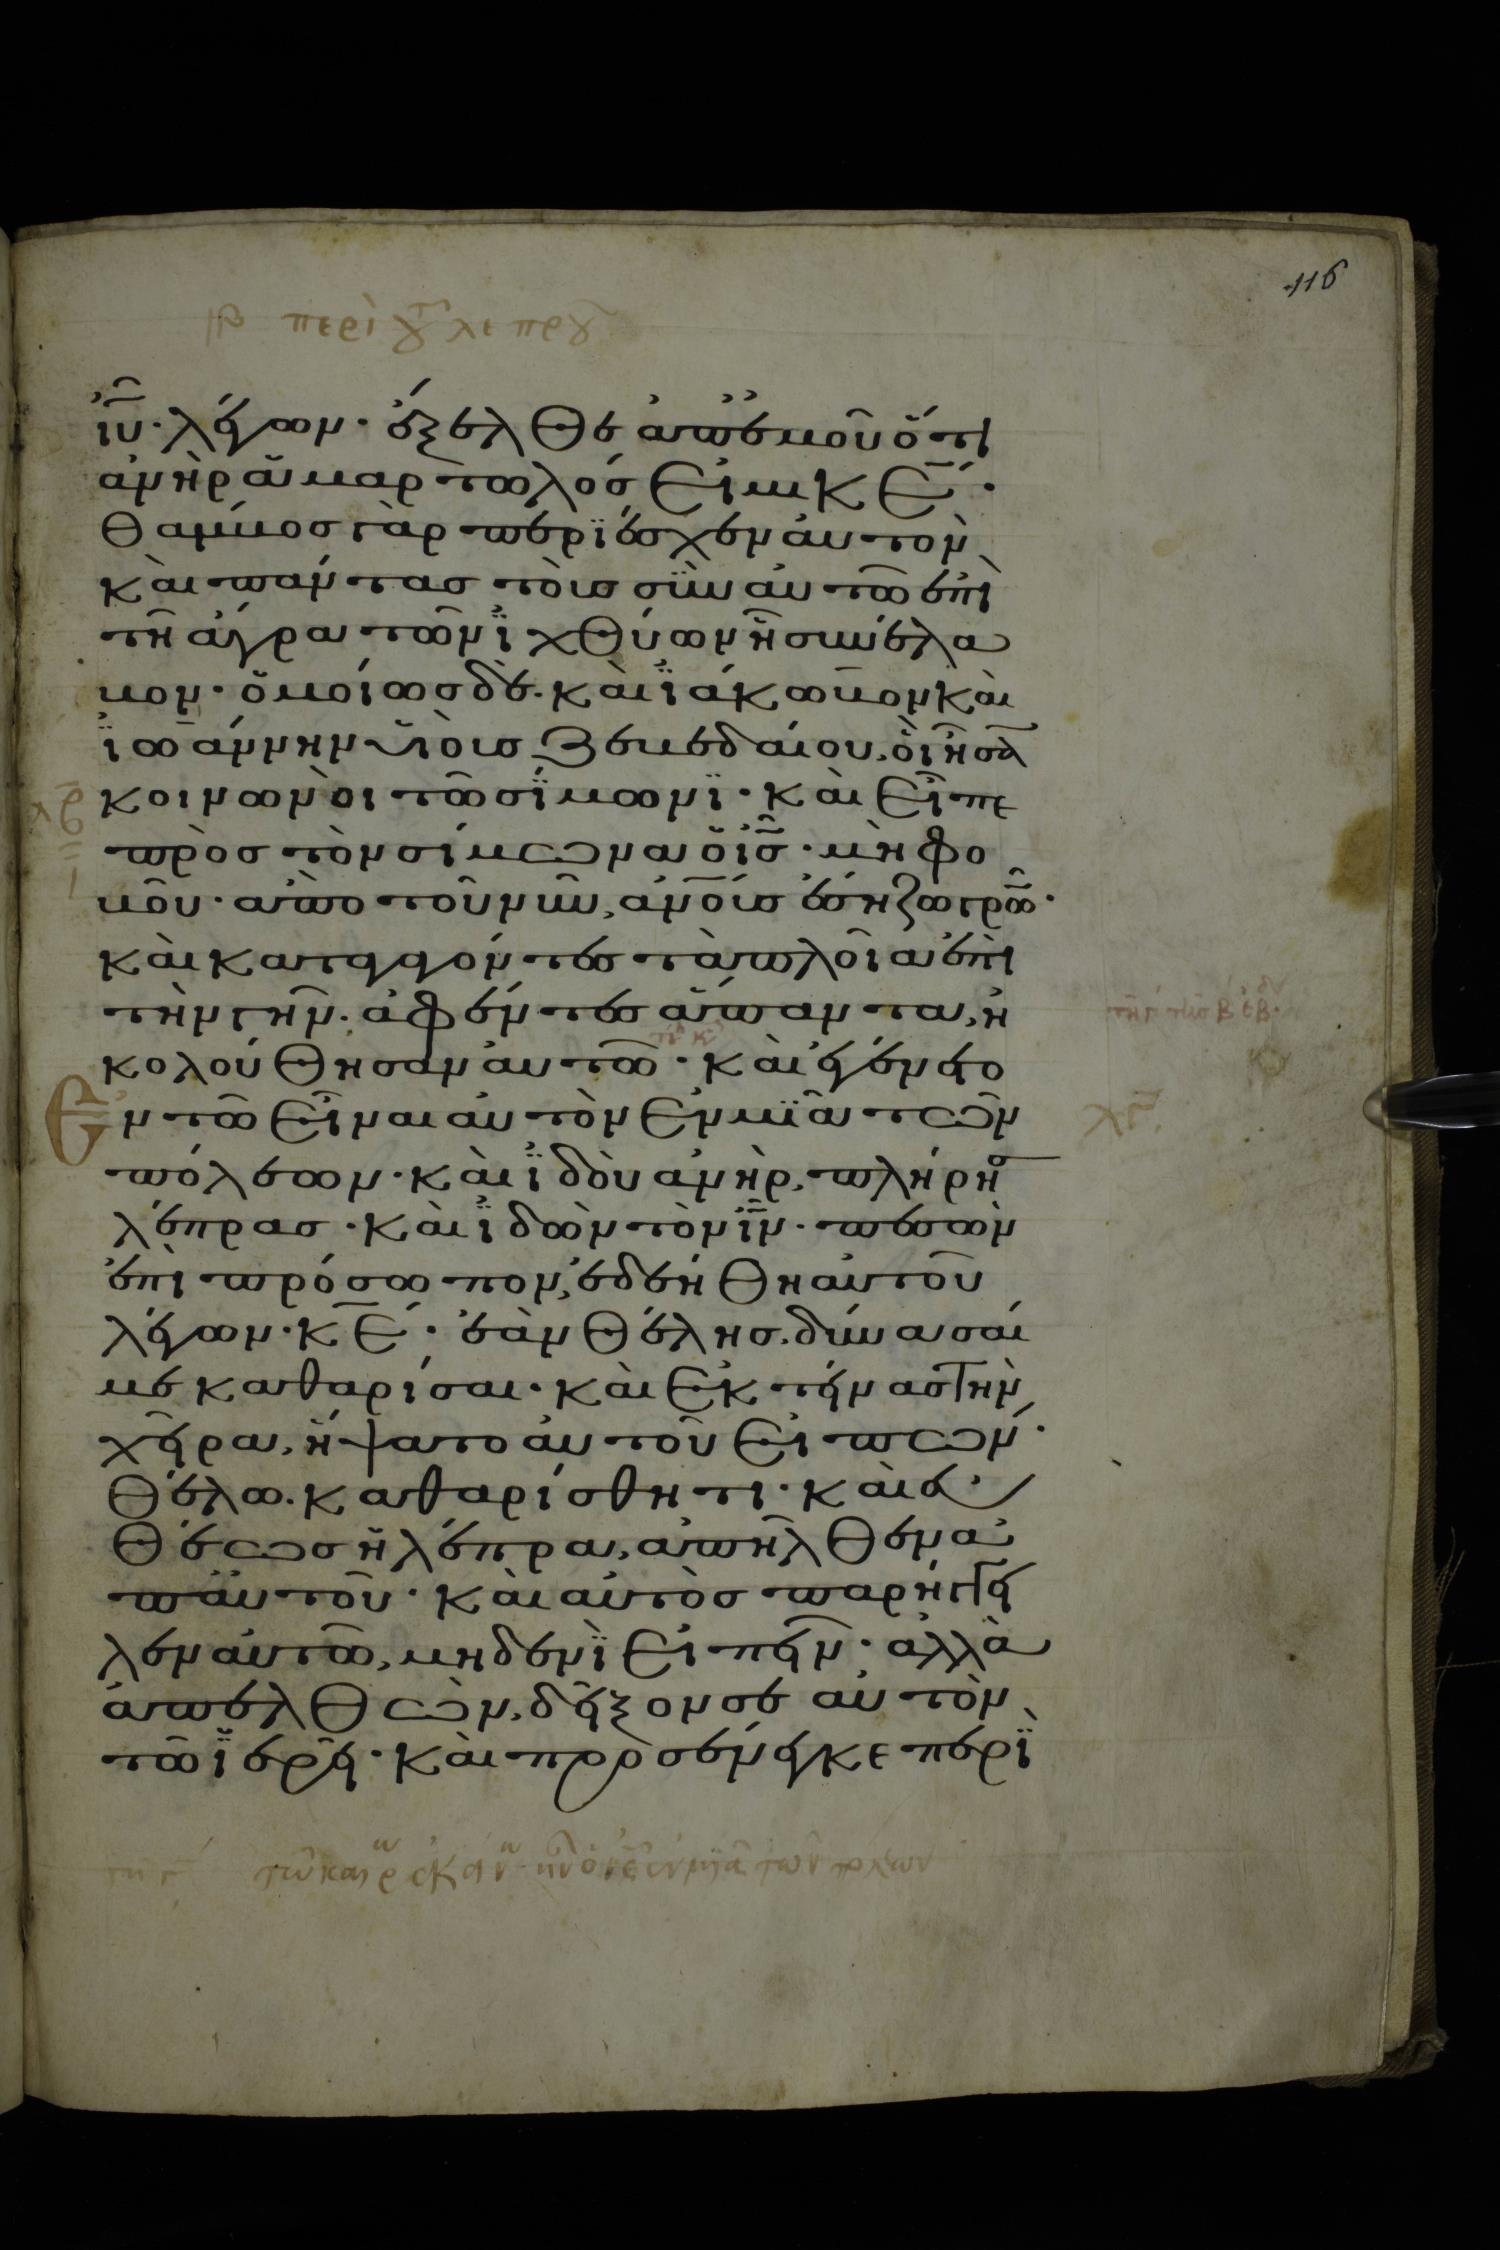 116
ιβ περὶ τοῦ λεπροῦ
ἰῦ· λέγων· ἔξελθε ἀπ' ἐμοῦ ὅτι
ἀνὴρ ἁμαρτωλός εἰμι κε·
θάμβος γὰρ περιέσχεν αὐτὸν
καὶ πάντας τοὺς σὺν αὐτῶ ἐπὶ
τῆ ἄγρα τῶν ἰχθύων ἧ συνέλα
βον· ὁμοίως δὲ· καὶ ἰάκωβον καὶ
ἰωάννην υἱοὺς ζεβεδαίου, οἳ ἦσαν
κοινωνοὶ τῶ σίμωνι· καὶ εἶπε
πρὸς τὸν σίμωνα ὁ ἰς· μὴ φο
βοῦ· ἀπὸ τοῦ νῦν, ἀνους ἔση ζωγρῶν·
καὶ καταγαγόντες τὰ πλοῖα ἐπὶ
τὴν γῆν· ἀφέντες ἅπαντα, ἠ
κολούθησαν αὐτῶ· καὶ ἐγένετο
ἐν τῶ εἶναι αὐτὸν ἐν μιᾶ τῶν
πόλεων· καὶ ἰδοὺ ἀνὴρ, πλήρης
λέπρας· καὶ ἰδὼν τὸν ἰν· πεσὼν
ἐπὶ πρόσωπον, ἐδεήθη αὐτοῦ
λέγων· κε· ἐὰν θέλης· δύνασαί
με καθαρίσαι· καὶ ἐκτείνας τὴν
χεῖρα, ἥψατο αὐτοῦ εἰπών·
θέλω· καθαρίσθητι· καὶ εὐ
θέως ἡ λέπρα, ἀπῆλθεν ἀ
π' αὐτοῦ· καὶ αὐτὸς παρήγγει
λεν αὐτῶ, μηδενὶ εἰπεῖν· ἀλλὰ
ἀπελθὼν, δεῖξον σεαυτὸν
τῶ ἱερεῖ· καὶ προσένεγκε περὶ
λβ
λγ